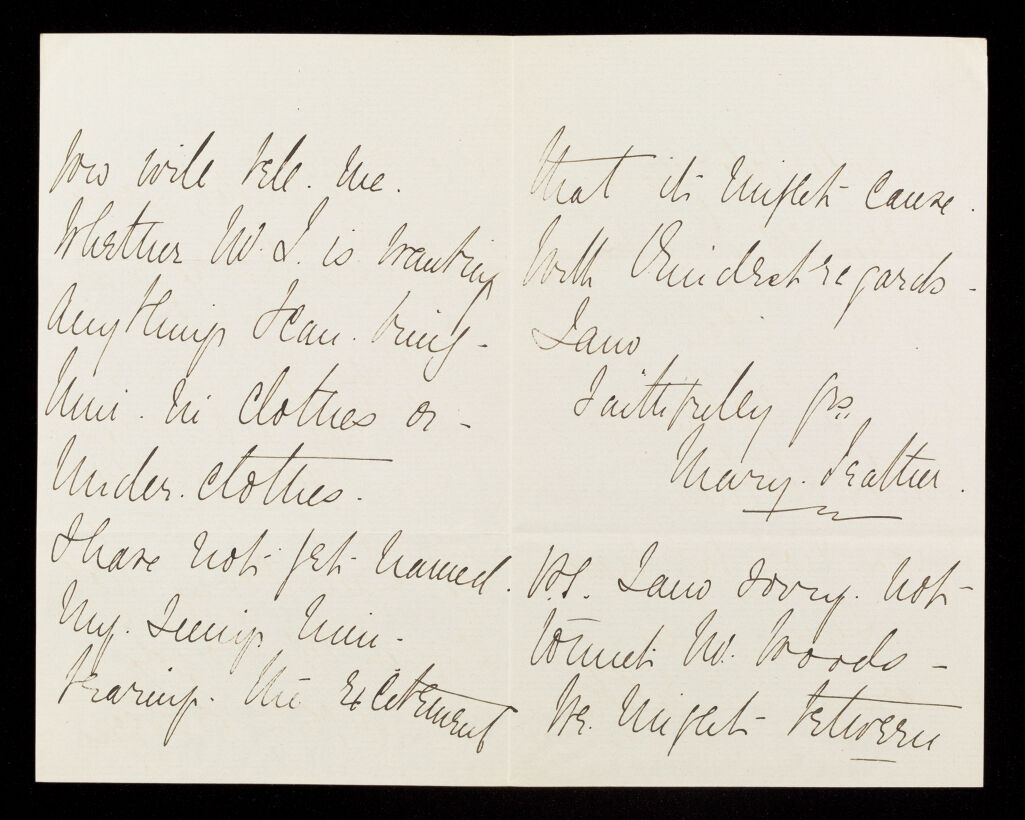 you will tell. me.
Whether Mr. I. is wanting
Anything I can. bring -
him. in clothes or -
Under. clothes.
I have not yet named.
My. Seeing him -
fearing. the excitement
that it might cause.
With Kindest regards -
I am
Faithfully yrs,
Mary. Feather.
P.S. I am sorry. not -
to meet Mr. Woods -
We. Might - between